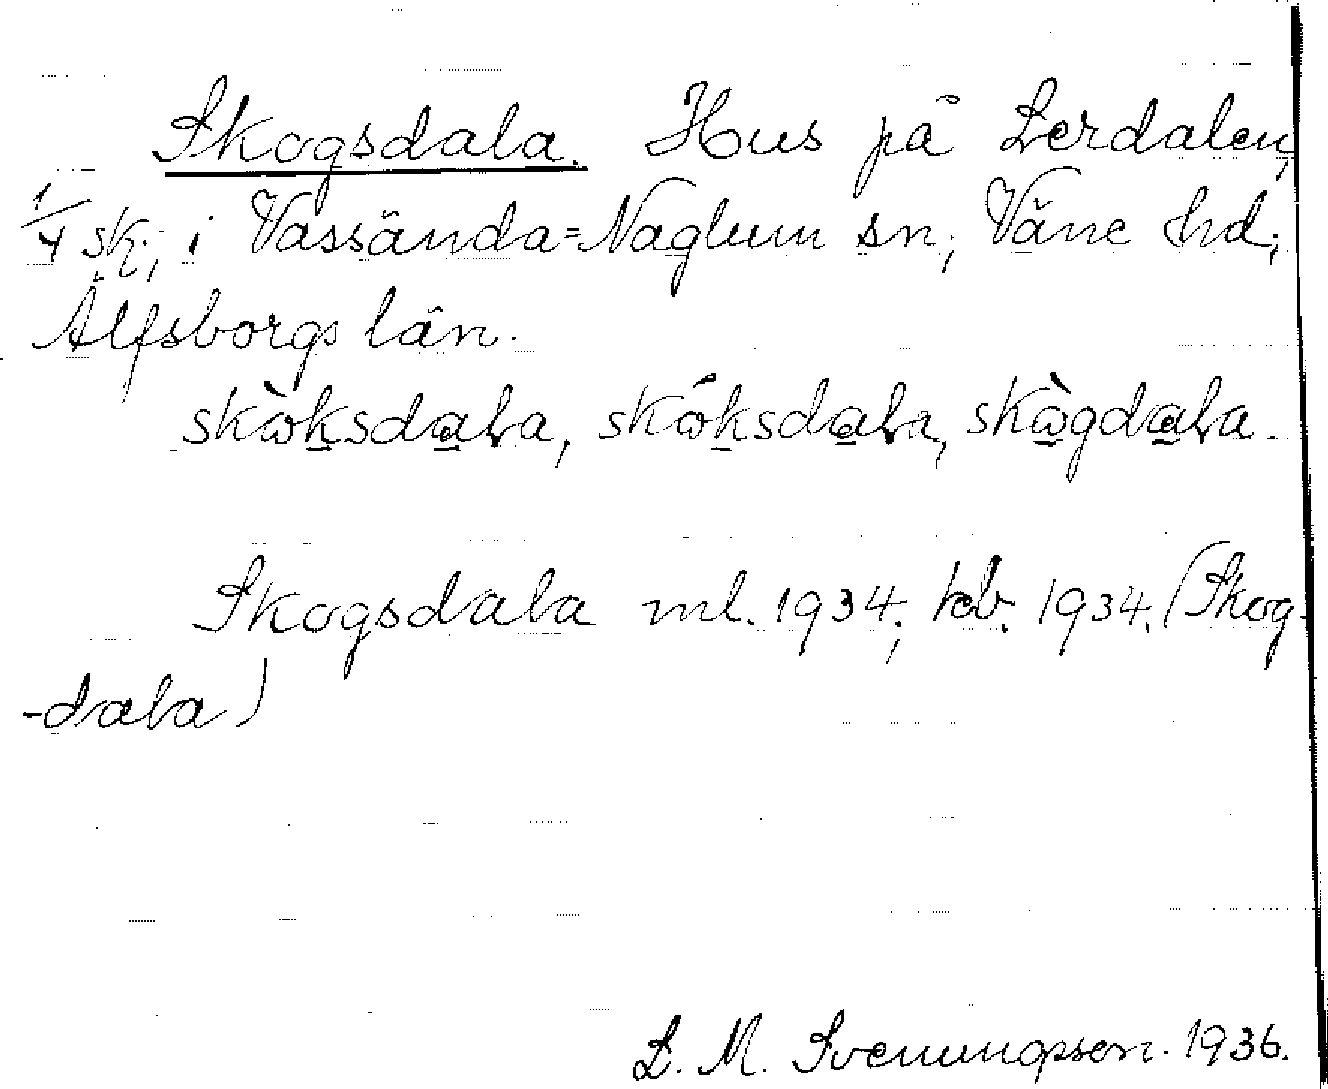 Skogsdala. Hus på Lerdalen,
1/4 sk.; i Vassända=Naglum sn; Väne hd;
Älfsborgs län.
skòksdala, skóksdala, skògdala.
Skogsdala ml. 1934; hdb. 1934. (Skog-
-dala)
L. M. Svenungsson. 1936.